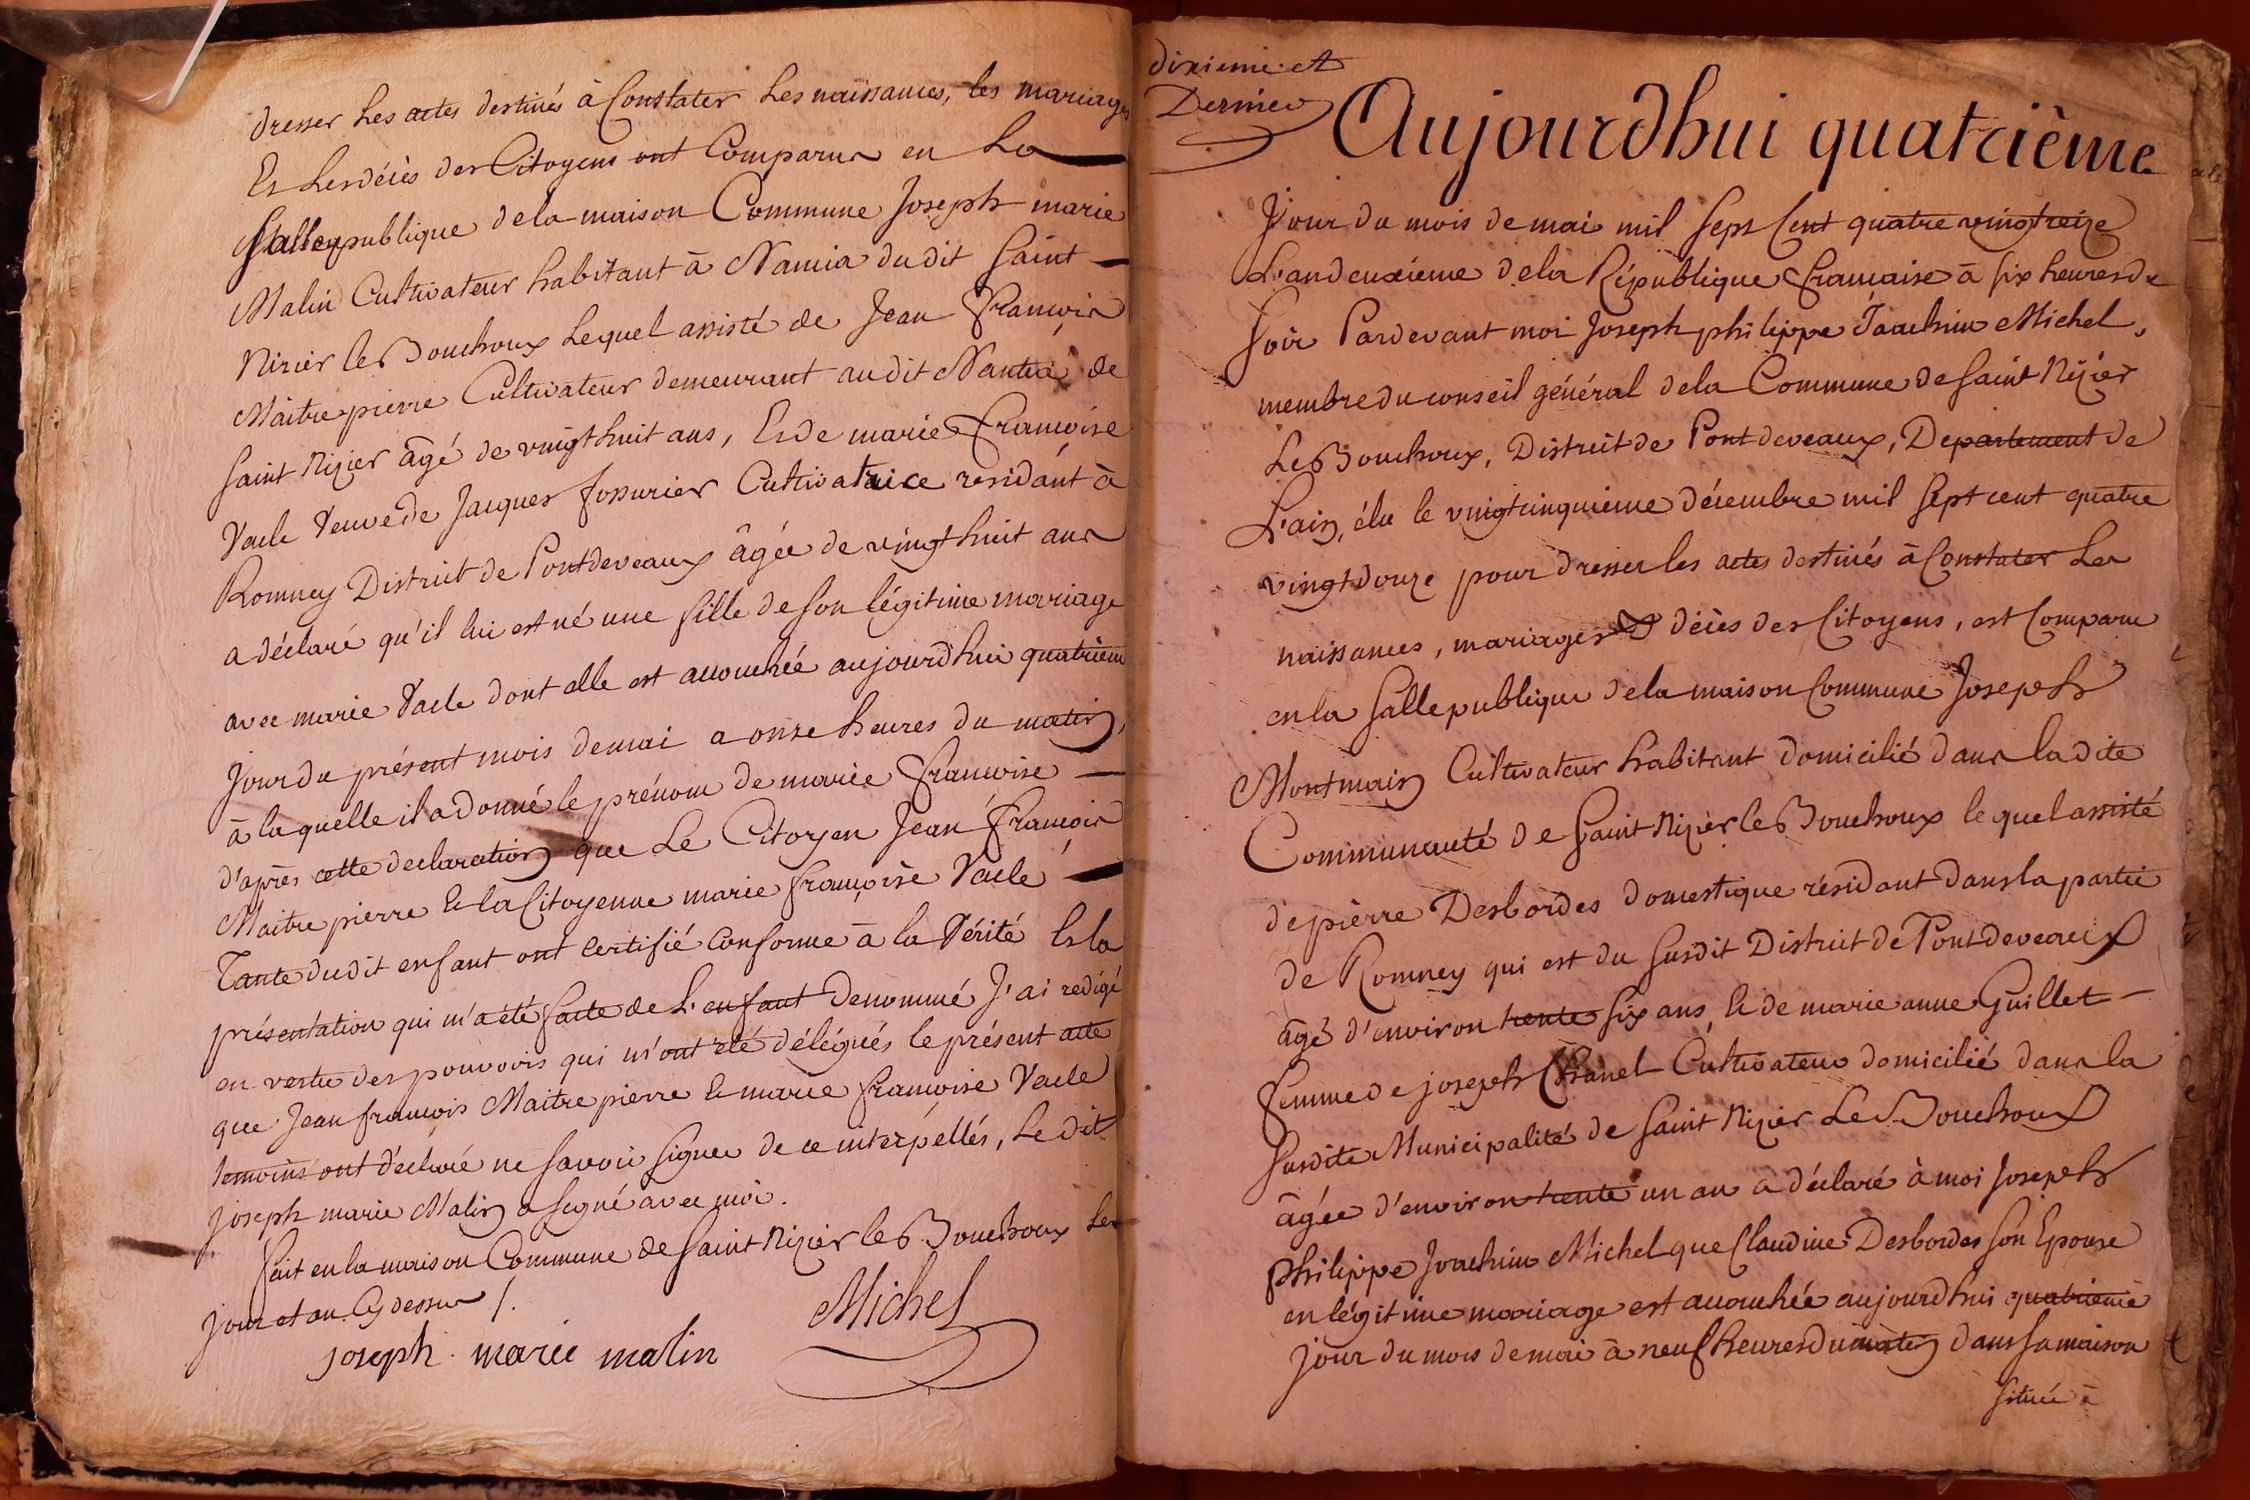 dresser Les actes destinés à Constater Les naissances, les mariages
Et Les décès des Citoyens ont Comparus en La
Salle publique de la maison Commune Joseph marie
Malin Cultivateur habitant à Namia du dit Saint
Nizier le Bouchoux Lequel assisté de Jean François
Maitrepierre Cultivateur demeurant au dit Namia de
Saint Nizier âgé de vingt huit ans, Et de marie Françoise
Vacle Veuve de Jacques Cultivatrice residant à
Romney District de Pontdeveaux âgée de vingt huit ans
a déclaré qu'il lui est né une fille de son légitime mariage
avec marie Vacle dont elle est accouchée aujourd'hui quatrieme
Jour du présent mois de mai a onze heures du matin,
à laquelle il a donné le prénom de marie Françoise
d'après cette declaration que Le Citoyen Jean François
Maitrepierre Et la Citoyenne marie françoise Vacle
Tante dudit enfant ont certifié conforme à la Vérité Et la
présentation qui m'a été faite de L'enfant denommé J'ai redigé
en vertu des pouvoirs qui m'ont été délégués le présent acte
que Jean françois Maitrepierre Et marie françoise Vacle
temoins ont déclaré ne savoir signer de ce interpéllés, Le dit
joseph marie Malin a signé avec moi.
fait en la maison Commune de Saint Nizier le Bouchoux Les
jour et an Cy dessus /.
joseph marie malin Michel
dixieme et
Dernier
Aujourdhui quatrième
Jour du mois de mai mil Sept Cent quatre vingt treize
L'an deuxieme de la République francaise à six heures du
Soir Pardevant moi Joseph philippe Joachim Michel,
membre du conseil général de la Commune de Saint Nizier
Le Bouchoux, District de Pontdeveaux, Departement de
L'ain, élu le vingt cinquieme décembre mil Sept cent quatre
vingt douze pour dresser les actes destinés à Constater Les
naissances, mariages & décès des Citoyens, est Comparu
en la Salle publique de la maison Commune Joseph
Montmain Cultivateur habitant domicilié dans la dite
Communauté de Saint Nizier le Bouchoux le quel assisté
de pierre Desbordes domestique résidant dans la partie
de Romney qui est du Susdit District de Pontdeveaux
âgé d'environ trente six ans, Et de marie anne Guillet
femme de joseph Chanel Cultivateur domicilié dans la
Susdite Municipalité de Saint Nizier Le Bouchoux
âgée d'environ trente un an a déclaré à moi Joseph
philippe Joachim Michel que Claudine Desbordes Son Epouse
en légitime mariage est accouchée aujourdhui quatrieme
jour du mois de mai à neuf heures du matin dans Sa maison
Située à